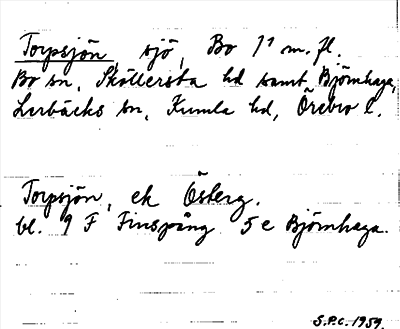 Torpsjön, sjö, Bo 7¹ m. fl.
Bo sn, Sköllersta hd samt Björnhaga,
Lerbäcks sn, Kumla hd, Örebro l.
Torpsjön, ek Österg.
bl. 9 F Finspång 5 e Björnhaga.
S.P.C. 1959.